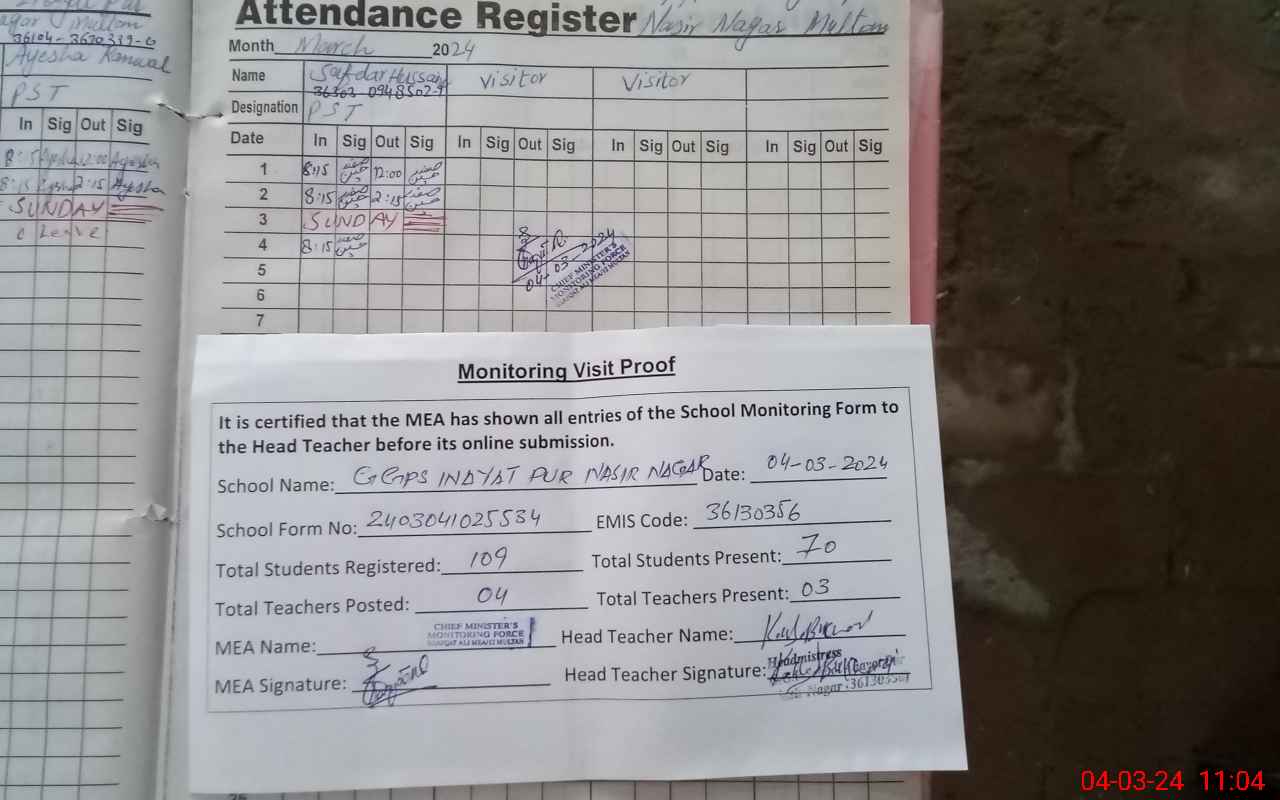 Multan
36104-3670339-6
Ayesha Kanwal
PST
In Sig Out Sig
8:15 Ayesha 12:00 Ayesha
8:15 Ayesha 2:15 Ayesha
SUNDAY
Leave
Attendance Register Nasir Nagar Multan
Month March 2024
Name Safdar Hussain Visitor Visitor
36303 0948502-9
Designation PST
Date In Sig Out Sig In Sig Out Sig In Sig Out Sig In Sig Out Sig
1 8:15 صفدر حسین 12:00 صفدر حسین
2 8:15 صفدر حسین 2:15 صفدر حسین
3 SUNDAY
4 8:15 صفدر حسین
5
6
7
04-03-2024
CHIEF MINISTER'S
MONITORING FORCE
Monitoring Visit Proof
It is certified that the MEA has shown all entries of the School Monitoring Form to
the Head Teacher before its online submission.
School Name: GGPS INAYAT PUR NASIR NAGAR Date: 04-03-2024
School Form No: 2403041025534 EMIS Code: 36130356
Total Students Registered: 109 Total Students Present: 70
Total Teachers Posted: 04 Total Teachers Present: 03
MEA Name: CHIEF MINISTER'S
MONITORING FORCE
Head Teacher Name:
MEA Signature:
Head Teacher Signature: Headmistress
Nagar
04-03-24 11:04